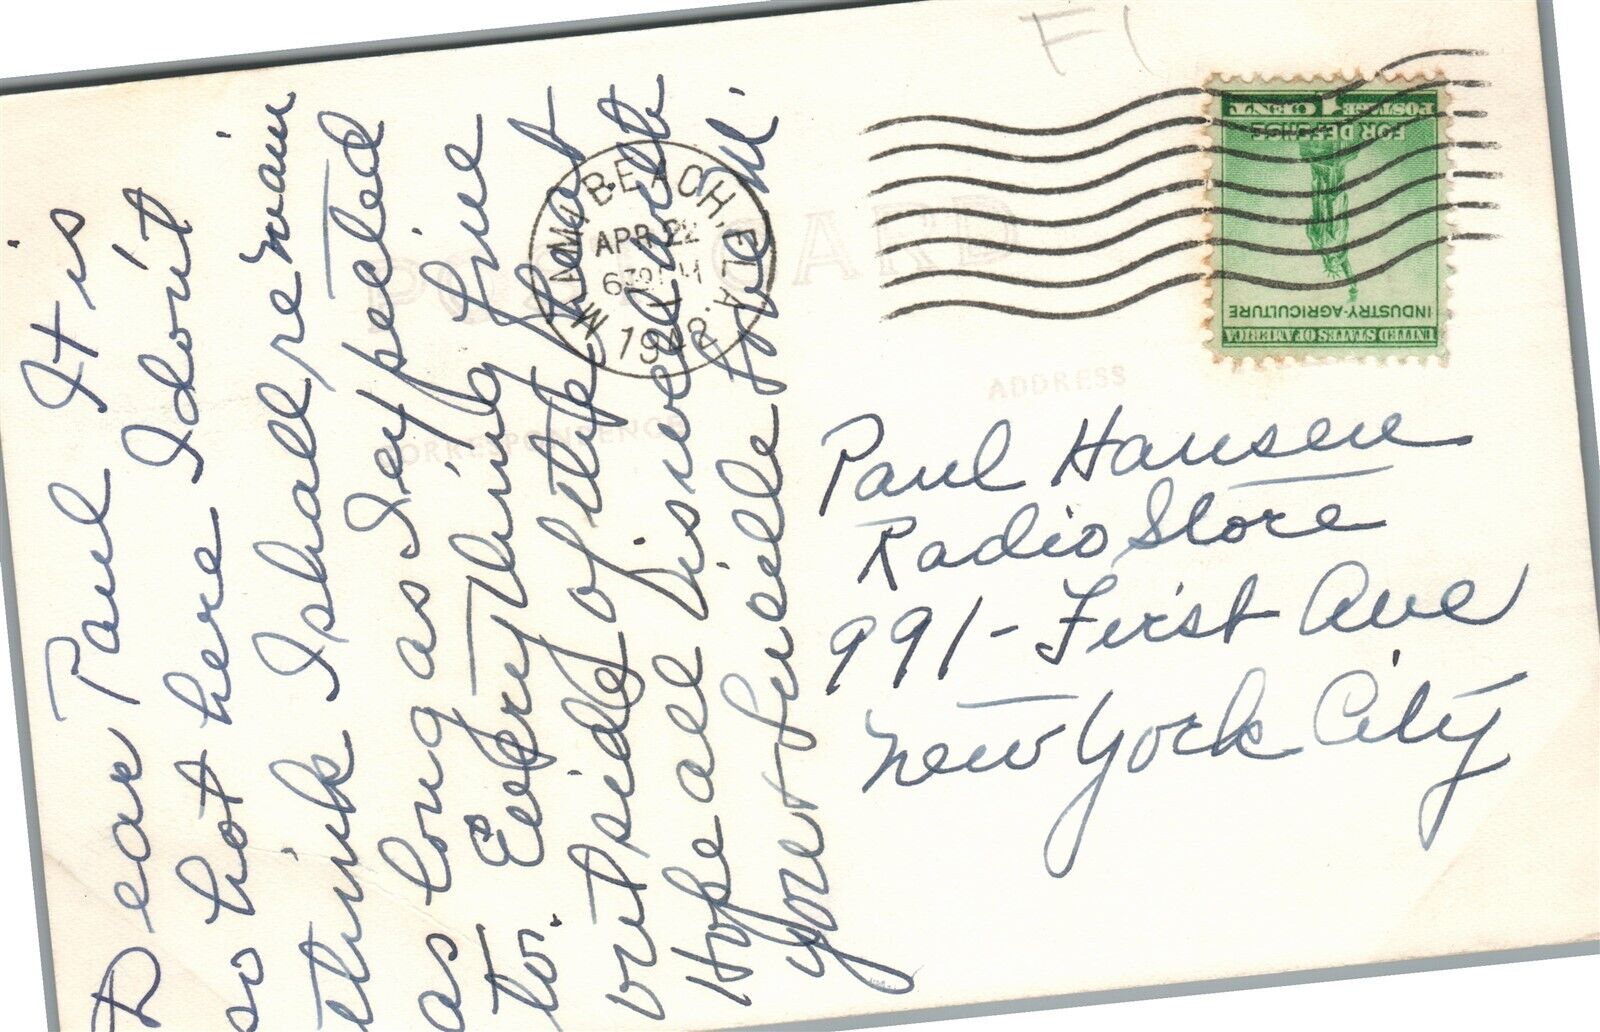 Dear Paul It is
so hot here I don't
think I shall remain
as long as I expected
to. Everything fine
outside of the heat
Hope all is well with
you & Lucille Love M.
POST CARD
CORRESPONDENCE
ADDRESS
F1
MIAMI BEACH, FLA.
APR 22
630 PM
1942
UNITED STATES OF AMERICA
INDUSTRY-AGRICULTURE
FOR DEFENSE
1 CENT 1 POSTAGE
Paul Hansen
Radio Store
991-First Ave
New York City